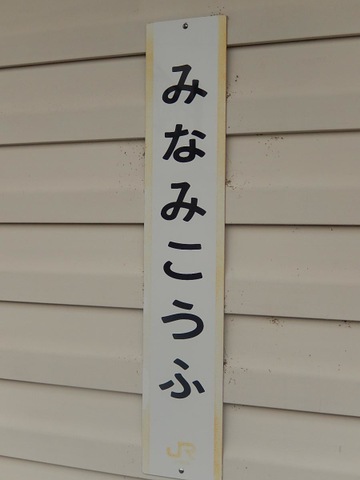 みなみこうふ
JR